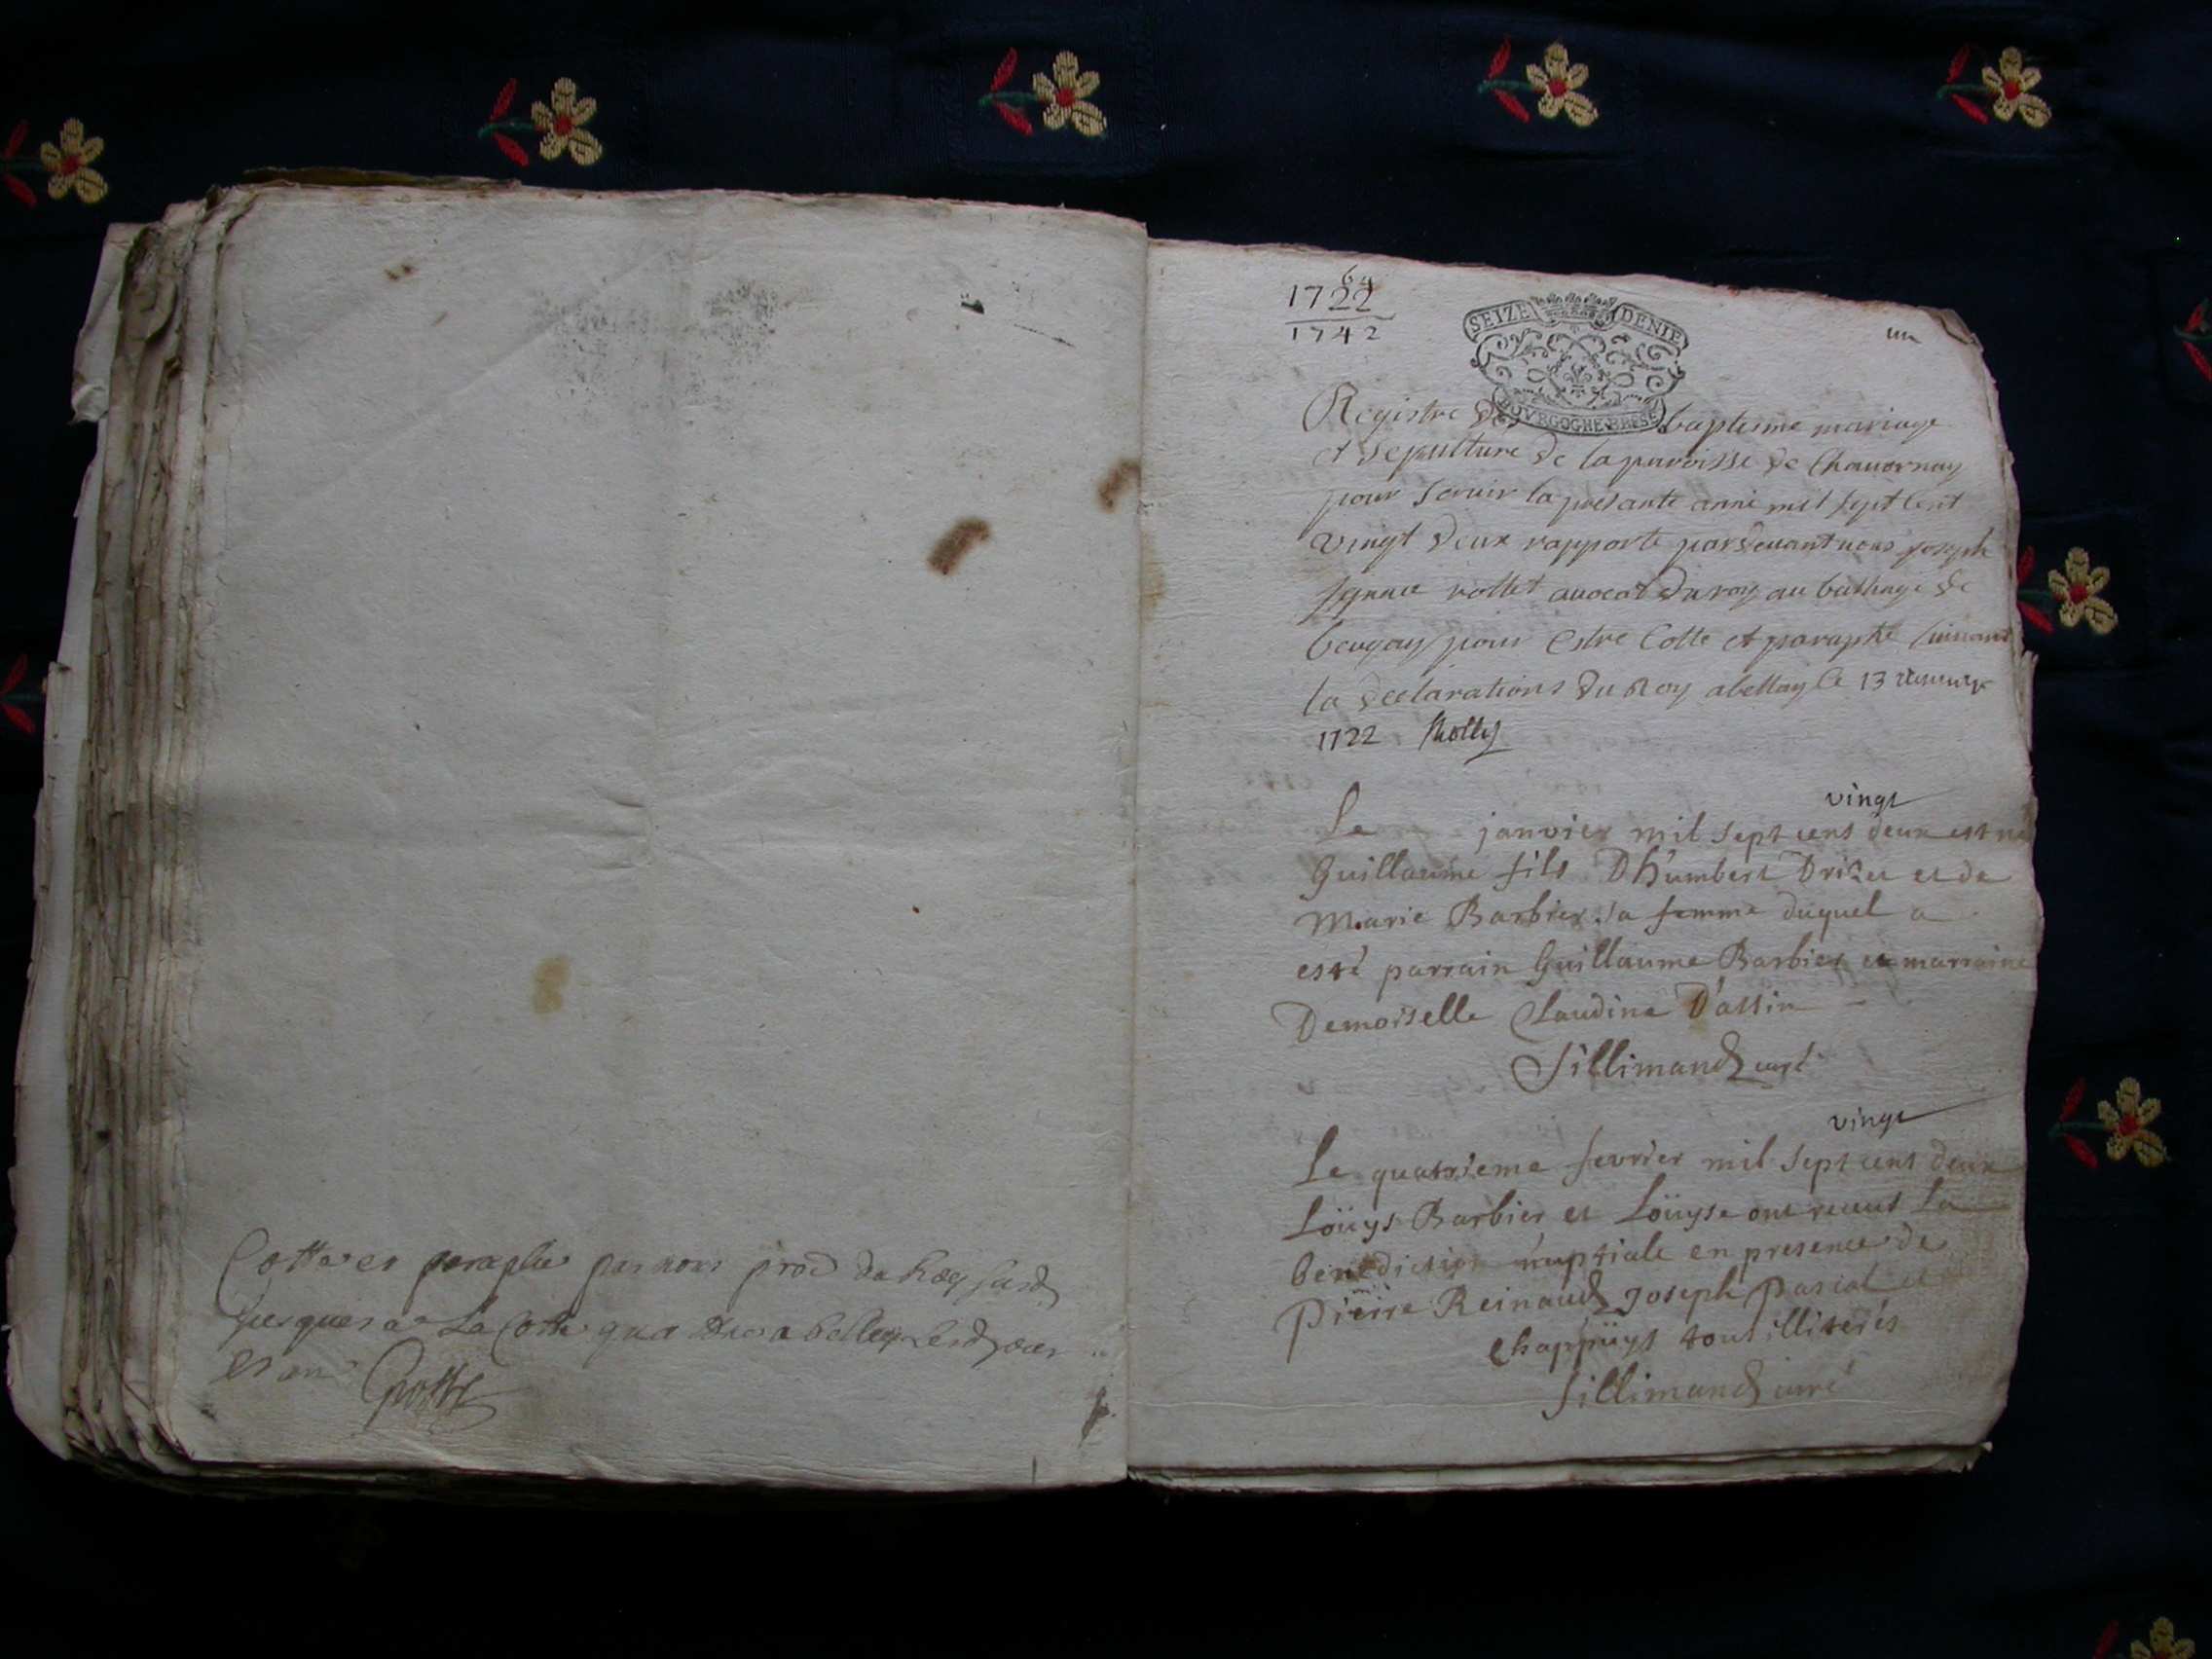 Cotte et paraphé par nous
jusques a la cotte quatre a belley
et an
64
1722
1742
SEIZE DENIE
BOVRGOGNE BRESSE
un
Registre des baptesme mariage
et sepulture de la paroisse de Chauornay
pour seruir la presante anné mil sept cent
vingt deux rapporté pardeuant nous joseph
ignace rollet auocat du roy au balliage de
beugay pour estre Cotté et paraphé suiuant
la declarations du Roy a bellay le 13 januuye
1722 Rollet
vingt
Le janvier mil sept cens deux est né
Guillaume fils D'humbert et de
Marie Barbier sa femme duquel a
esté parrain Guillaume Barbier et marraine
Demoiselle Claudine D'assin
Sillimand curé
vingt
Le quatrieme fevrier mil sept cent deux
Loüys Barbier et Loüyse ont receus la
benediction nuptiale en presence de
Pierre Reinaud Joseph Pascal et
Chappüys tous illiterés
Sillimand curé